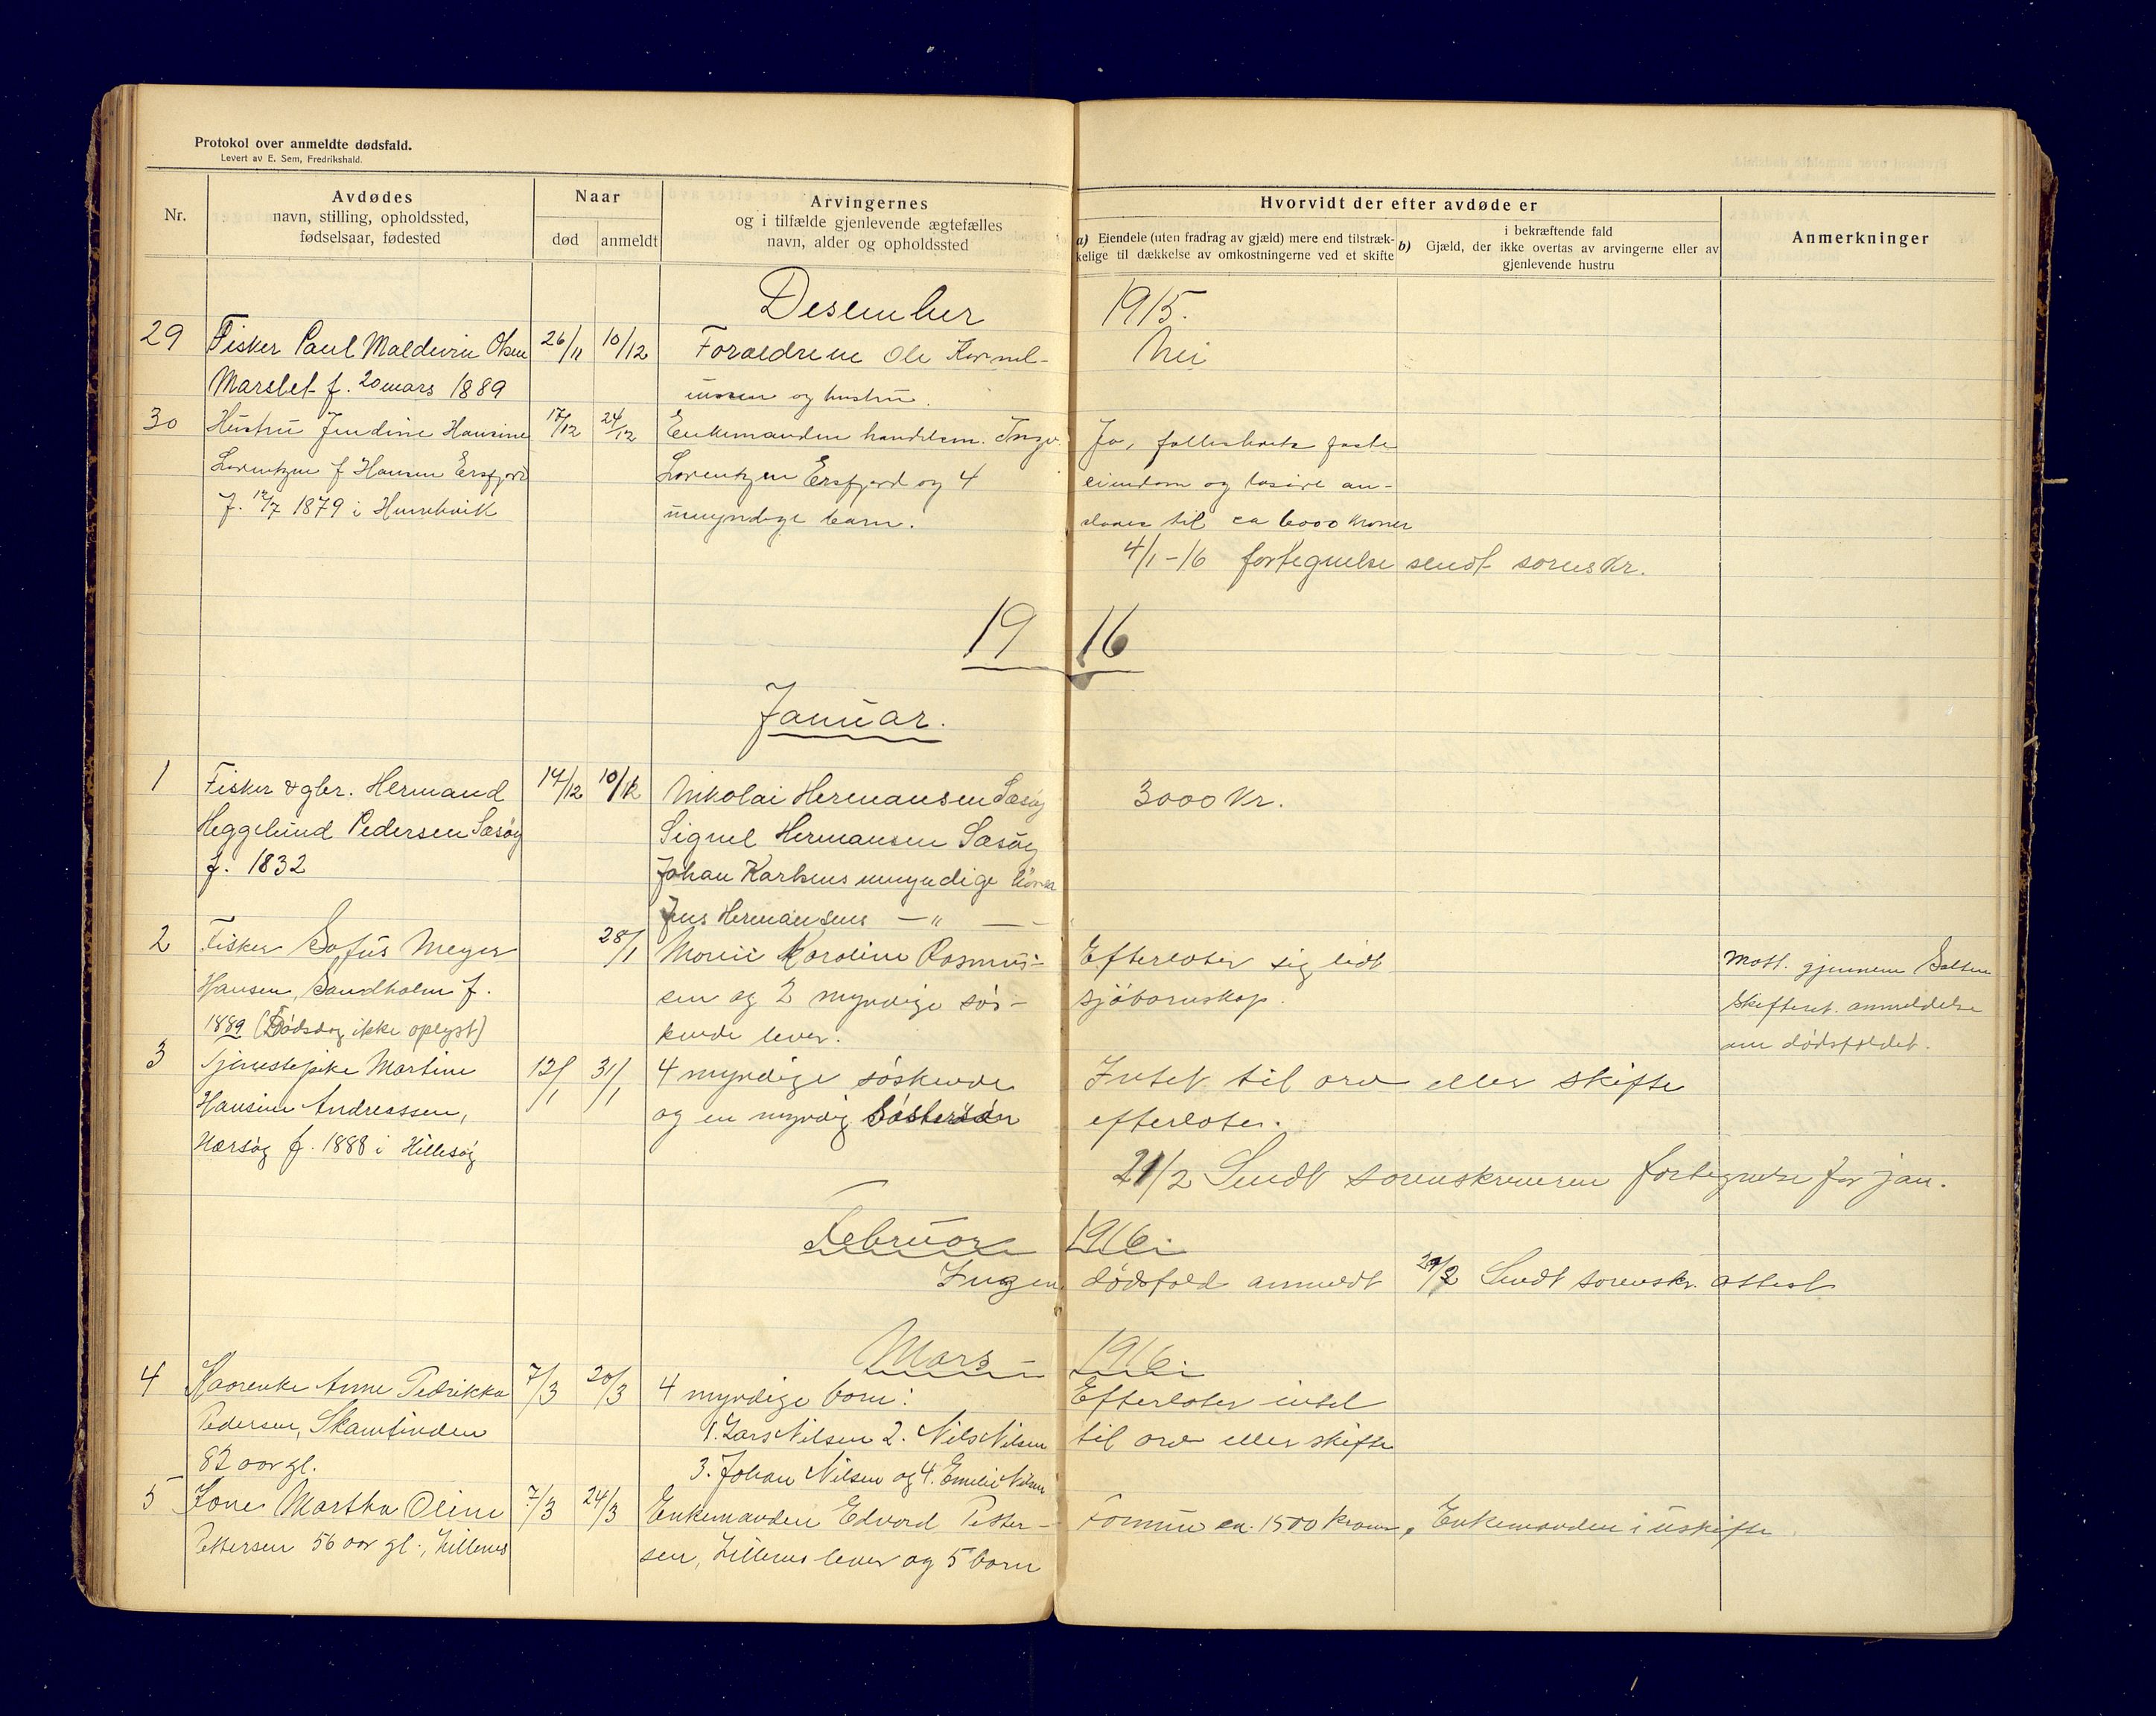 Protokol over anmeldte dødsfald.
Levert av E. Sem, Fredrikshald.
Nr.
Avdødes
navn, stilling, opholdssted,
fødselsaar, fødested
Naar
død
anmeldt
Arvingernes
og i tilfælde gjenlevende ægtefælles
navn, alder og opholdssted
Hvorvidt der efter avdøde er
a) Eiendele (uten fradrag av gjæld) mere end tilstræk-
kelige til dækkelse av omkostningerne ved et skifte
i bekræftende fald
b) Gjæld, der ikke overtas av arvingerne eller av
gjenlevende hustru
Anmerkninger
Desember 1915.
29 Fisker Paul Maldevin Olsen 26/11 10/12 Forældrene Ole Kornel- Nei
Marslet f. 20 mars 1889 iussen og hustru.
30 Hustru Jendine Hansine 17/12 24/12 Enkemanden handelsm. Ingv. Ja, fællesboets faste
Lorentzen f Hansen Ersfjord Lorentzen Ersfjord og 4 eiendom og løsøre an-
f. 12/7 1879 i umyndige barn. slaaes til ca 6000 kroner
4/1-16 fortegnelse sendt sorenskr.
1916
Januar.
1 Fisker & gbr. Hermand 14/12 10/12 Nikolai Hermansen Sæsøy 3000 Kr.
Heggelund Pedersen Sæsøy Signel Hermansen Sæsøy
f. 1832 Johan Karlsens umyndige
Jens Hermansens — " —
2 Fisker Sofus Meyer 28/1 Karoline Rasmus- Efterlater sig lidt Mott. gjennem Salten
Hansen, Sandholm f. sen og 2 myndige søs- sjøbornskap. skifteret. anmeldelse
1889 (Dødsdag ikke oplyst) kende lever. om dødsfaldet.
3 Tjenestepike Martine 12/1 31/1 4 myndige søskende Intet til arv eller skifte
Hansine Andreassen, og en myndig søstersøn efterlates.
f. 1888 i Hillesøy
21/2 Sendt sorenskriveren fortegnelse for jan.
Februar 1916.
Ingen dødsfald anmeldt 29/2 Sendt sorenskr. attest
Mars 1916.
4 Anne Pedrikka 7/3 20/3 4 myndige børn: Efterlater intet
Pedersen, Skamtinden 1. Lars Nilsen 2. Nils Nilsen til arv eller skifte
82 aar gl. 3. Johan Nilsen og 4. Emelie Nilsen
5 Kone Martha Oline 7/3 24/3 Enkemanden Edvard Petter- Formue ca. 1500 kroner, Enkemanden i uskifte.
Pettersen 56 aar gl., sen, lever og 5 børn